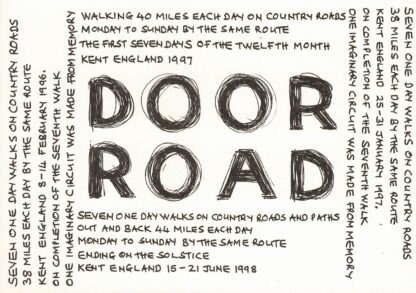 WALKING 40 MILES EACH DAY ON COUNTRY ROADS
MONDAY TO SUNDAY BY THE SAME ROUTE
THE FIRST SEVEN DAYS OF THE TWELFTH MONTH
KENT ENGLAND 1997
DOOR
ROAD
SEVEN ONE DAY WALKS ON COUNTRY ROADS AND PATHS
OUT AND BACK 44 MILES EACH DAY
MONDAY TO SUNDAY BY THE SAME ROUTE
ENDING ON THE SOLSTICE
KENT ENGLAND 15-21 JUNE 1998
SEVEN ONE DAY WALKS ON COUNTRY ROADS
38 MILES EACH DAY BY THE SAME ROUTE
KENT ENGLAND 8-14 FEBRUARY 1996.
ON COMPLETION OF THE SEVENTH WALK
ONE IMAGINARY CIRCUIT WAS MADE FROM MEMORY
SEVEN ONE DAY WALKS ON COUNTRY ROADS
38 MILES EACH DAY BY THE SAME ROUTE
KENT ENGLAND 25-31 JANUARY 1997.
ON COMPLETION OF THE SEVENTH WALK
ONE IMAGINARY CIRCUIT WAS MADE FROM MEMORY